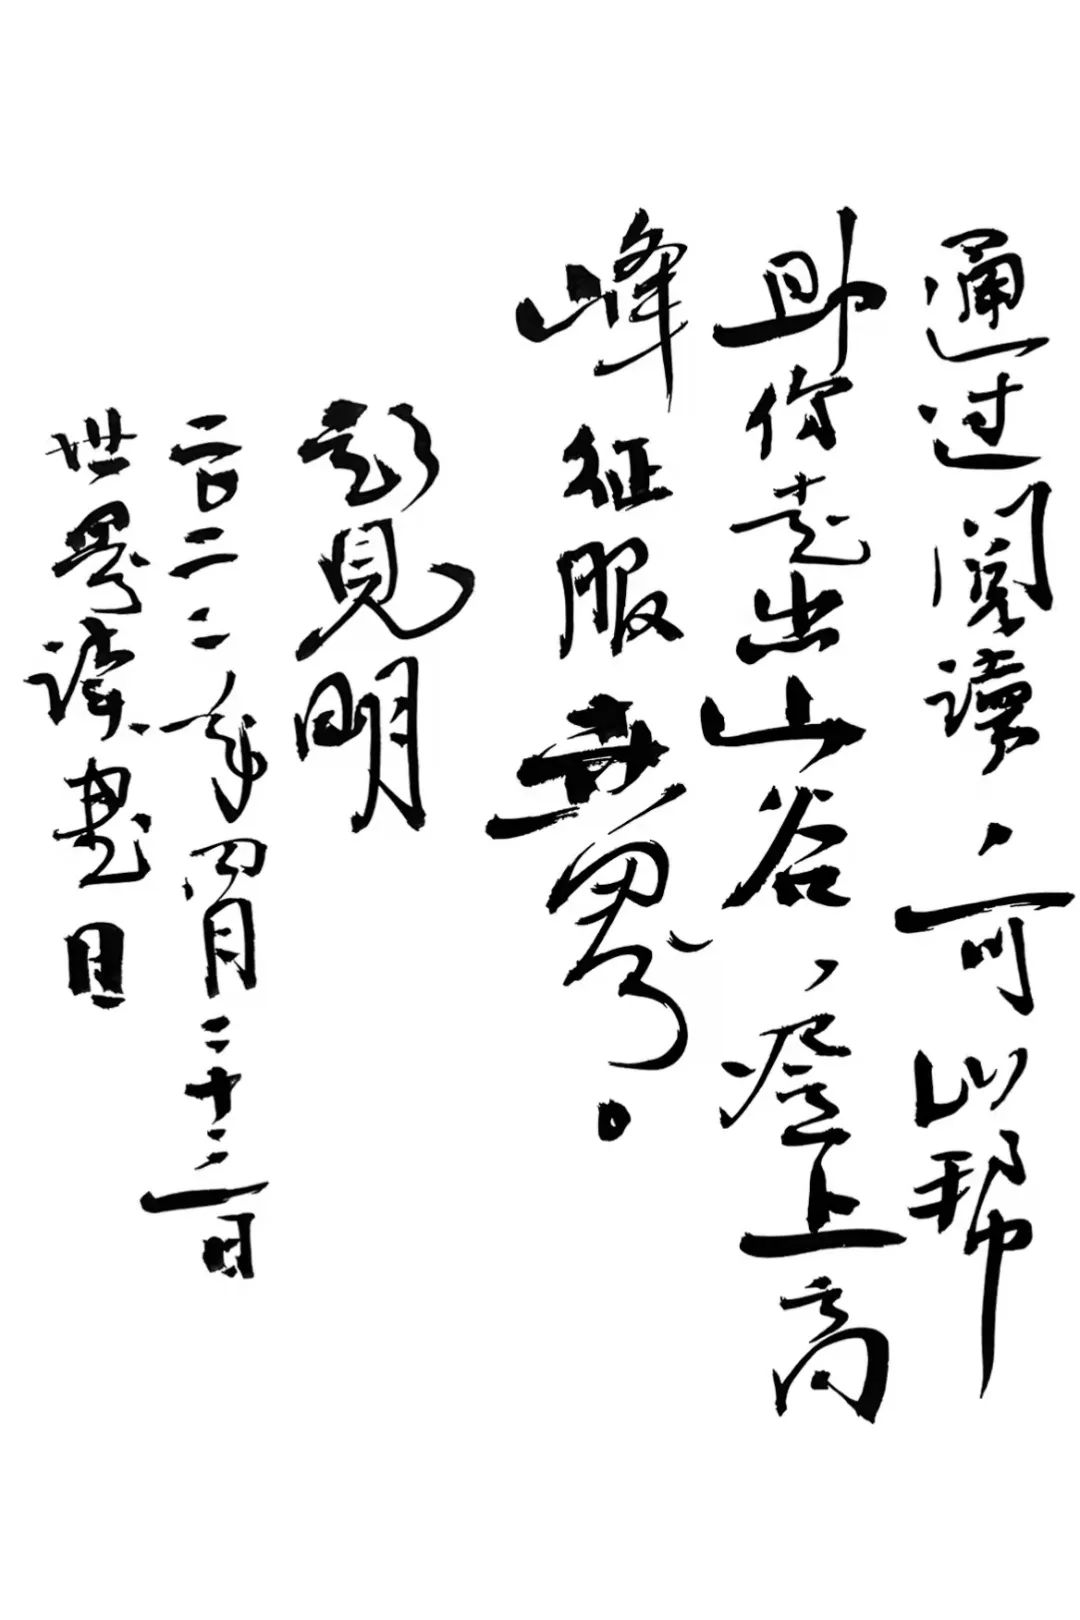 通过阅读，可以帮
助你走出山谷，登上高
峰征服世界。
彭见明
二〇二二年四月二十三日
世界读书日